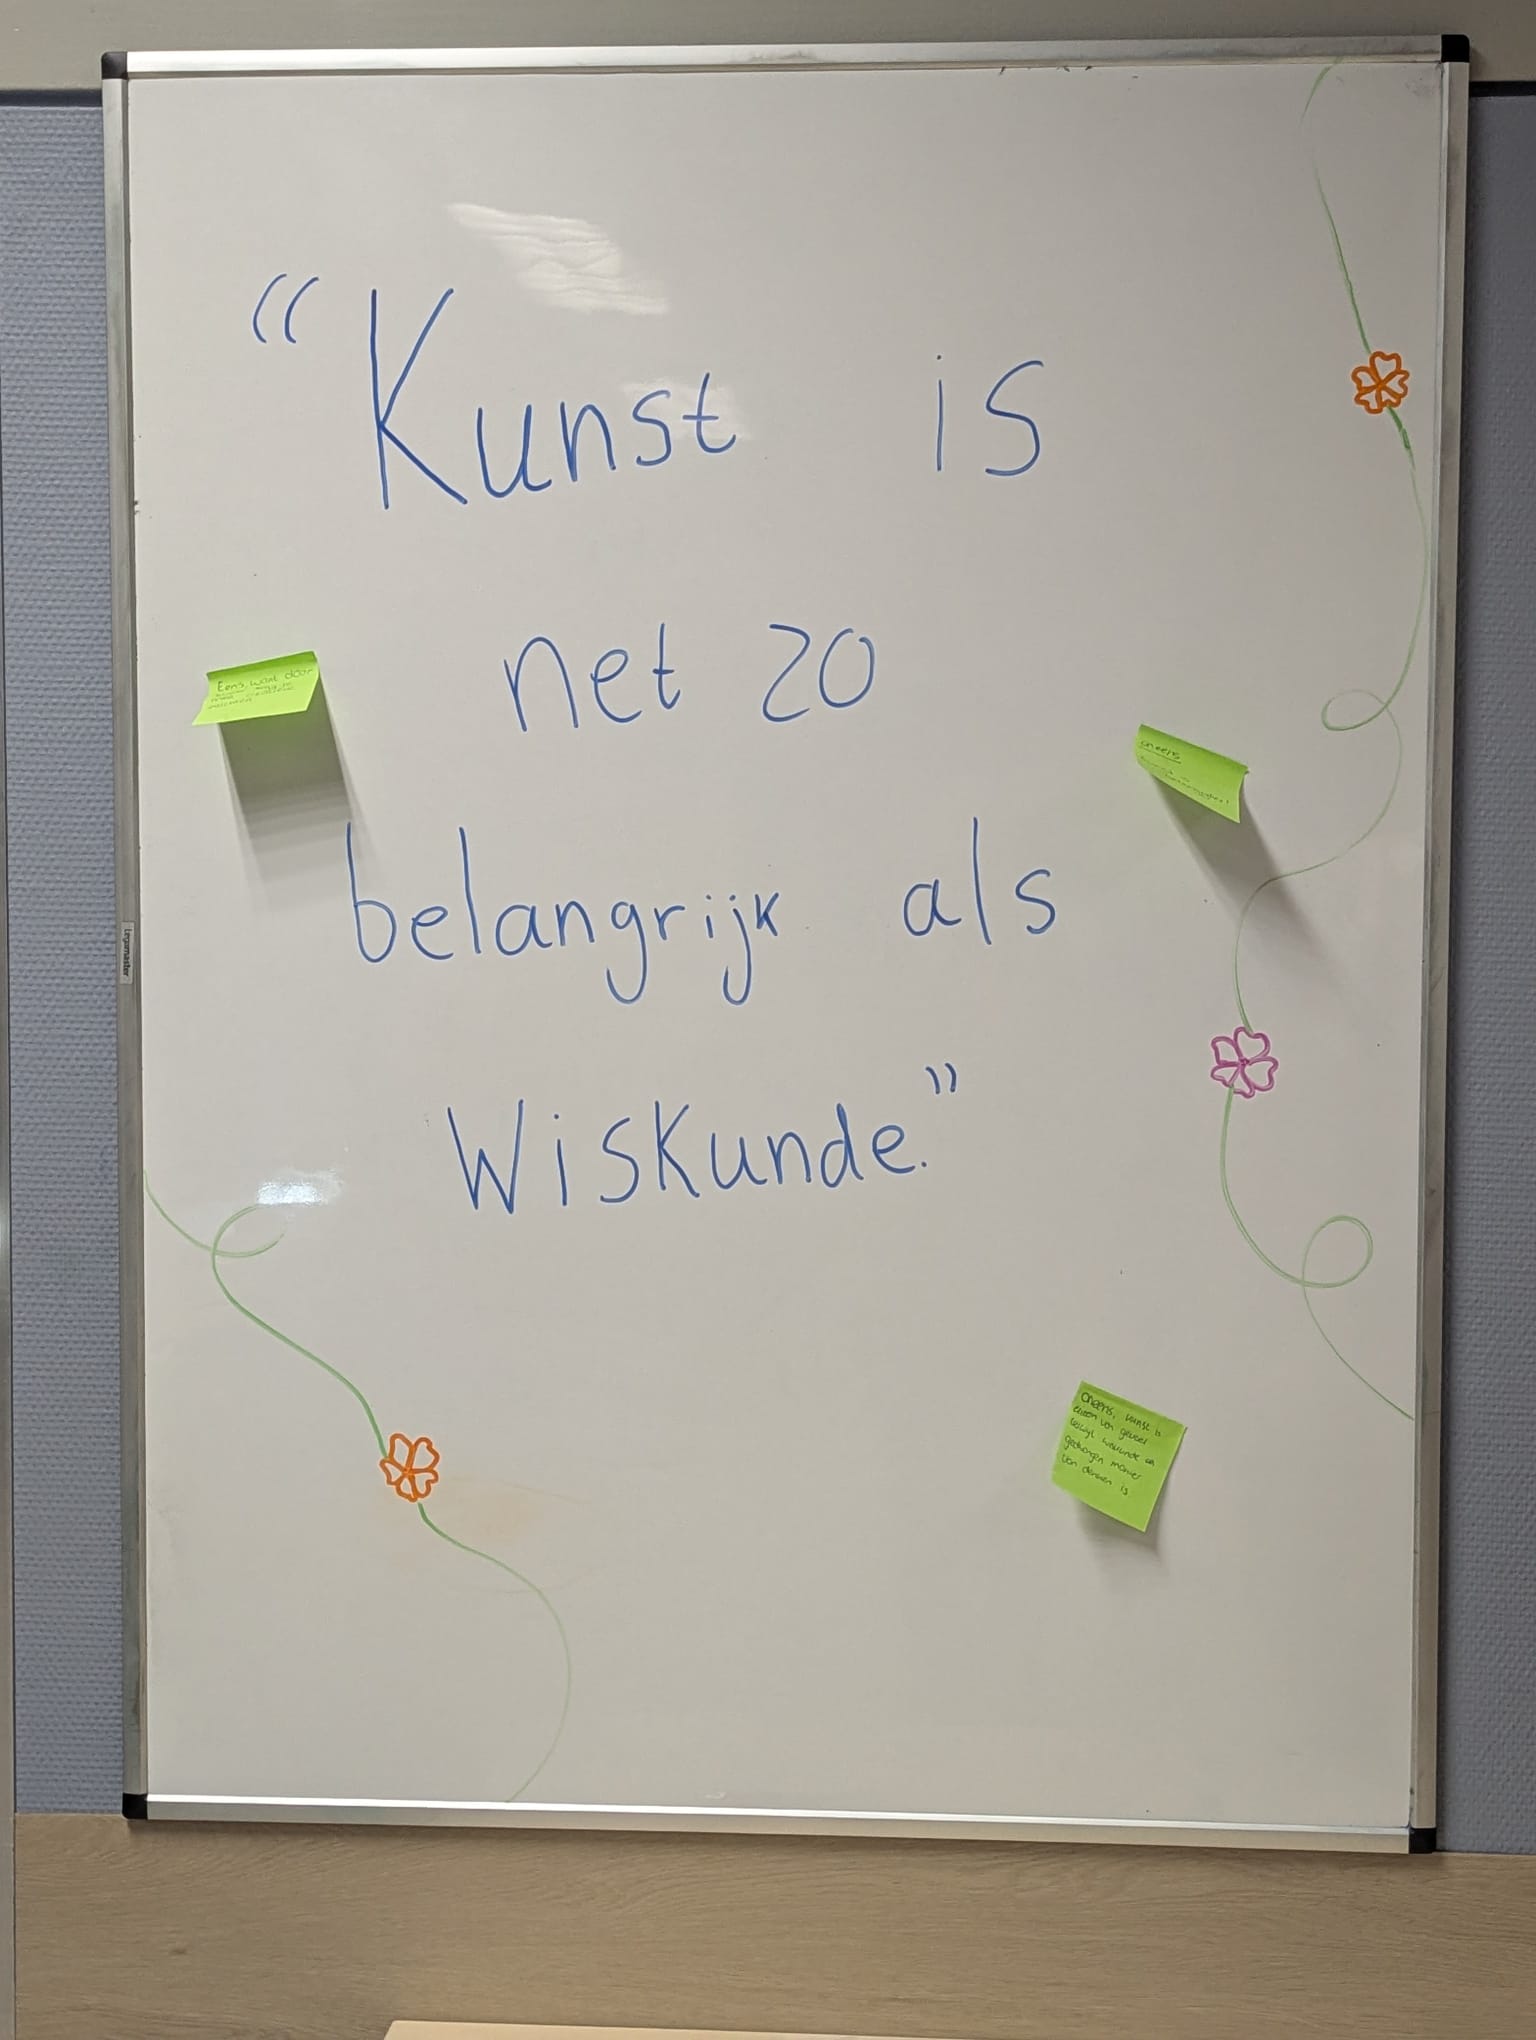 "Kunst is
net zo
belangrijk als
Wiskunde."
Eens, want door
oneens
oneens, kunst is
van gevoel
terwijl wiskunde een
gedwongen manier
van denken is
Legamaster